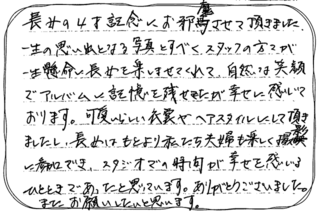 長女の4才記念にお邪魔させて頂きました
一生の思い出となる写真とすべく、スタッフの方々が
一生懸命に長女を楽しませてくれて、自然な笑顔
でアルバムに記憶を残せたのが幸せに感じて
おります。可愛いらしい衣裳やヘアスタイルにして頂き
ましたし、長女はもとより私たち夫婦も楽しく撮影
に参加でき、スタジオでの時間が幸せを感じる
ひとときであったと思っています。ありがとうございました。
またお願いしたいと思います。